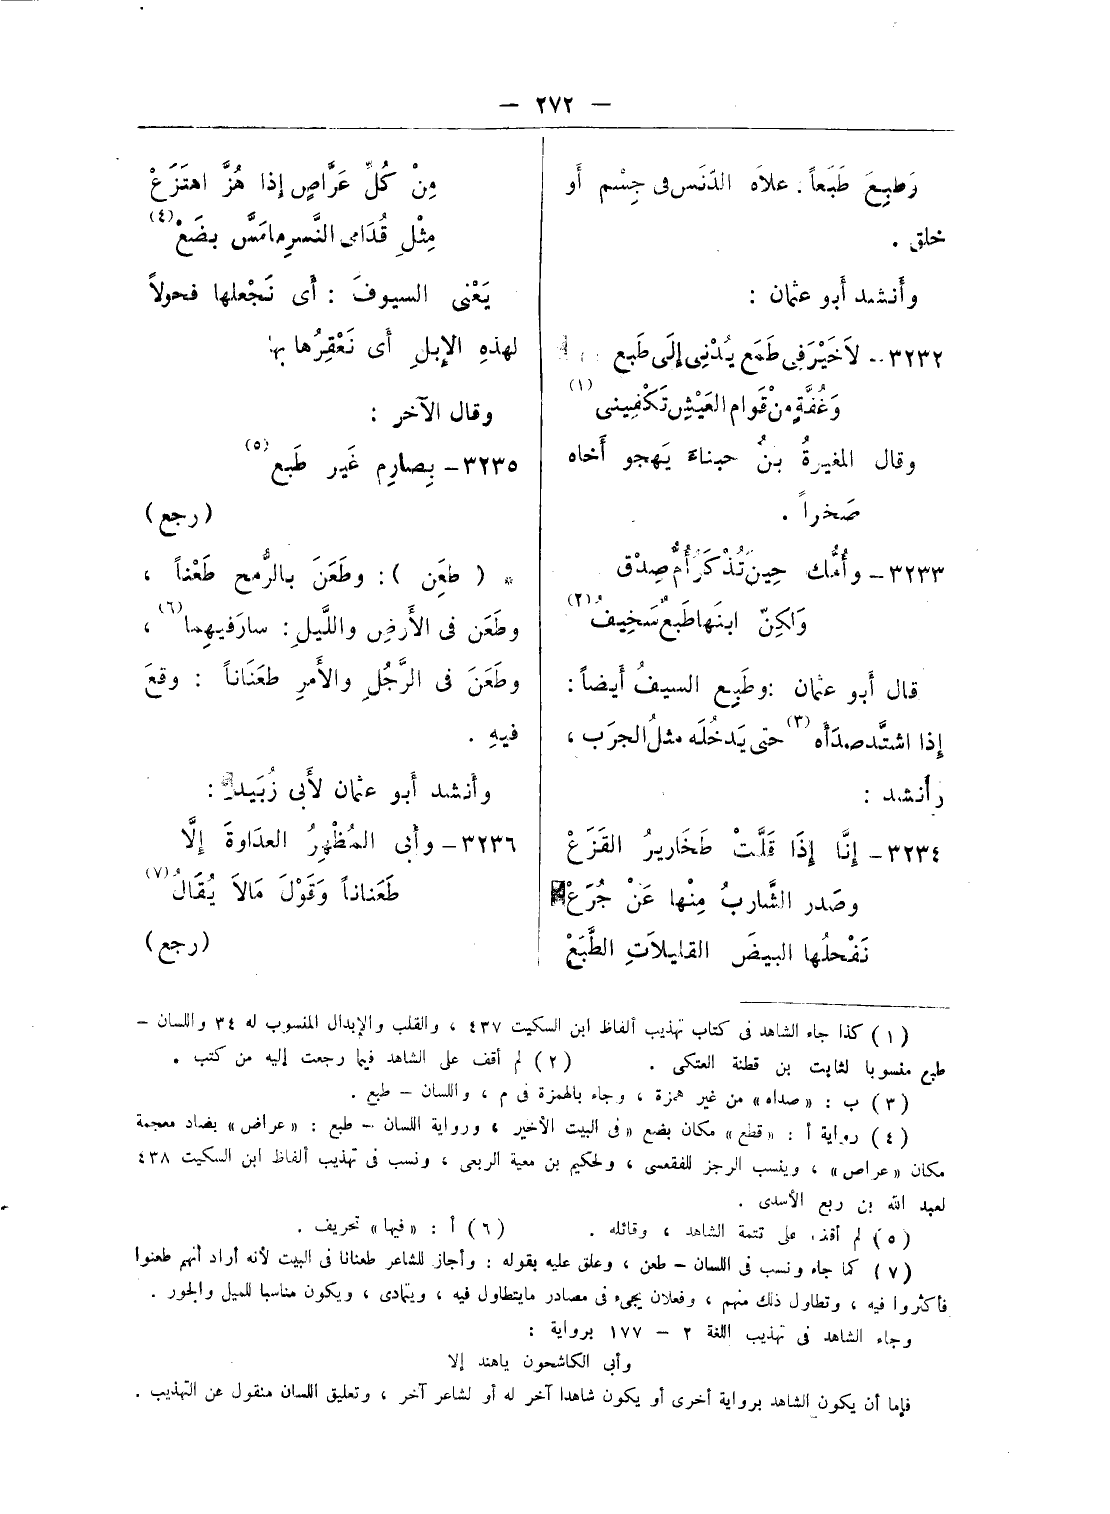 — ٢٧٢ —
وَطبِعَ طَبَعاً . علاَه الدَنَس فى جِسْم أَو
خلق .
وأَنشد أَبو عثمان :
٣٢٣٢ – لاَ خَيْرَ فِى طَمَعٍ يُدْنِى إِلَى طَبع
وَغُفَّةٍ منْ قَوام العَيْشِ تَكْفِينى (١)
وقال المغيرةُ بنُ حبناءَ يَهجو أَخاه
صَخراً .
٣٢٣٣ – وأُمُّك حِينَ تُذْكَرُ أُمُّ صِدْق
وَلَكِنّ ابنَها طَبعٌ سَخِيفُ (٢)
قال أَبو عثمان : وطَبِع السيفُ أَيضاً :
إِذا اشتَّد صدَأَه (٣) حتى يَدخُلَه مثلُ الجرَب ،
وأَنشد :
٣٢٣٤ – إِنَّا إِذَا قَلَّتْ طَخَارِيرُ القَزَعْ
وصَدر الشَّاربُ مِنْها عَنْ جُرَعْ
نَفْحلُها البيضَ القليلاتِ الطَّبَعْ
مِنْ كُلِّ عَرَّاصٍ إِذا هُزَّ اهتَزَعْ
مِثْلِ قُدَامى النَّسرِ مامَسَّ بضَعْ (٤)
يَعْنى السيوفَ : أَى نَجْعلها فحولاً
لهذهِ الإِبلِ أَى نَعْقِرُها بها
وقال الآخر :
٣٢٣٥ – بِصارِم غَير طَبع (٥)
( رجع )
* ( طعَن ) : وطَعَنَ بالرُّمح طَعْناً ،
وطَعَن فى الأَرضِ واللَّيلِ : سارَ فيهِما (٦) ،
وطَعَنَ فى الرَّجُلِ والأَمرِ طعَنَاناً : وقعَ
فيهِ .
وأَنشد أَبو عثمان لأَبى زُبَيد :
٣٢٣٦ – وأَبى المُظْهِرُ العدَاوةَ إلَّا
طَعَناناً وَقَوْلَ مَالاَ يُقَالُ (٧)
( رجع )
( ١ ) كذا جاء الشاهد فى كتاب تهذيب ألفاظ ابن السكيت ٤٣٧ ، والقلب والإبدال المنسوب له ٣٤ واللسان –
طبع منسوبا لثابت بن قطنة العتكى . ( ٢ ) لم أقف على الشاهد فيما رجعت إليه من كتب .
( ٣ ) ب : «صداه» من غير همزة ، وجاء بالهمزة فى م ، واللسان – طبع .
( ٤ ) رواية أ : «قطع» مكان بضع «فى البيت الأخير ، ورواية اللسان – طبع : «عراض» بضاد معجمة
مكان «عراص» ، وينسب الرجز للفقعسى ، ولحكيم بن معية الربعى ، ونسب فى تهذيب ألفاظ ابن السكيت ٤٣٨
لعبد الله بن ربع الأسدى .
( ٥ ) لم أقف على تتمة الشاهد ، وقائله . ( ٦ ) أ : «فيها» تحريف .
( ٧ ) كما جاء ونسب فى اللسان – طعن ، وعلق عليه بقوله : وأجاز للشاعر طعنانا فى البيت لأنه أراد أنهم طعنوا
فأكثروا فيه ، وتطاول ذلك منهم ، وفعلان يجىء فى مصادر مايتطاول فيه ، ويتمادى ، ويكون مناسبا للميل والجور .
وجاء الشاهد فى تهذيب اللغة ٢ – ١٧٧ برواية :
وأبى الكاشحون ياهند إلا
فإما أن يكون الشاهد برواية أخرى أو يكون شاهدا آخر له أو لشاعر آخر ، وتعليق اللسان منقول عن التهذيب .